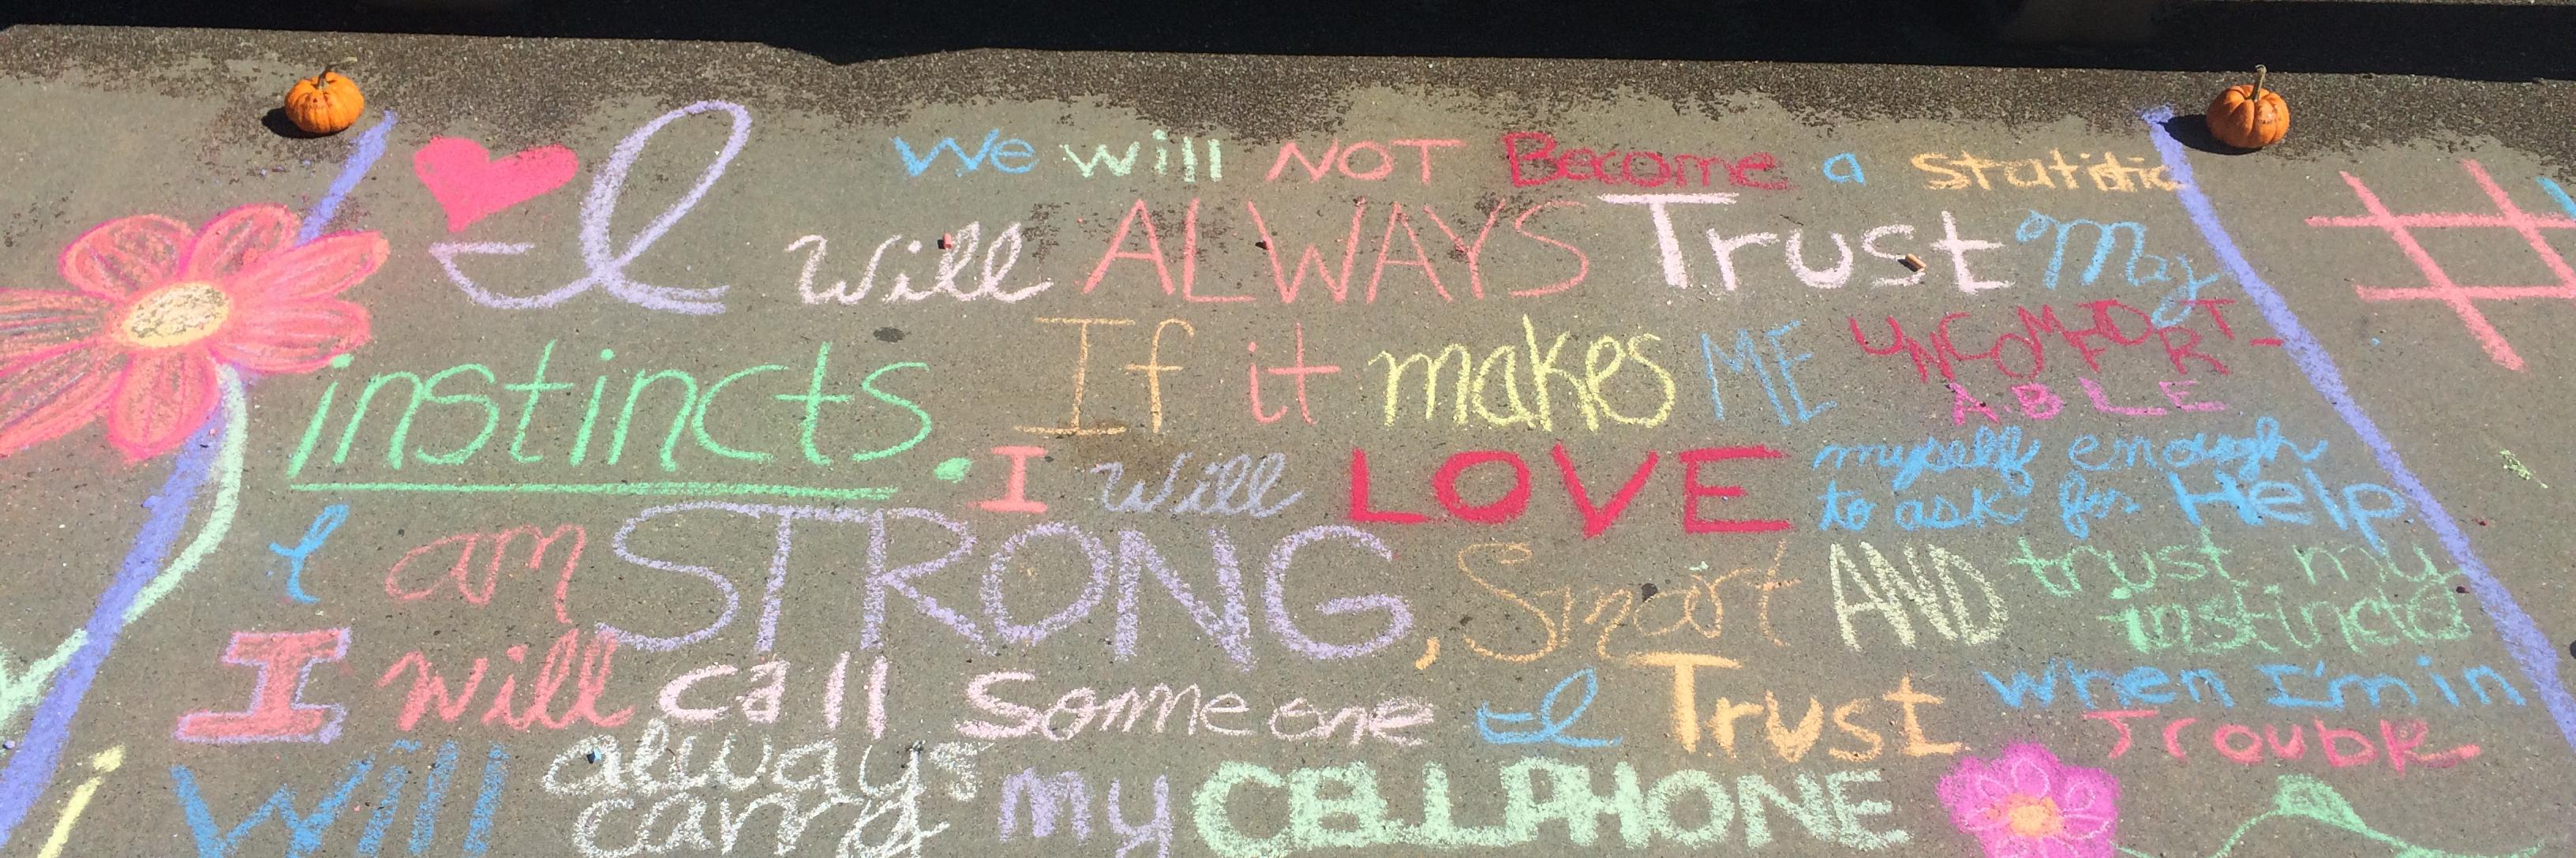 We will NOT Become a Statistic
I will ALWAYS Trust My
instincts. If it makes ME UNCOMFORT-
ABLE
I will LOVE myself enough
to ask for Help
I am STRONG, Smart AND trust my
instincts
I will call someone I Trust when I'm in
Trouble
i will always
carry my CELLPHONE
#